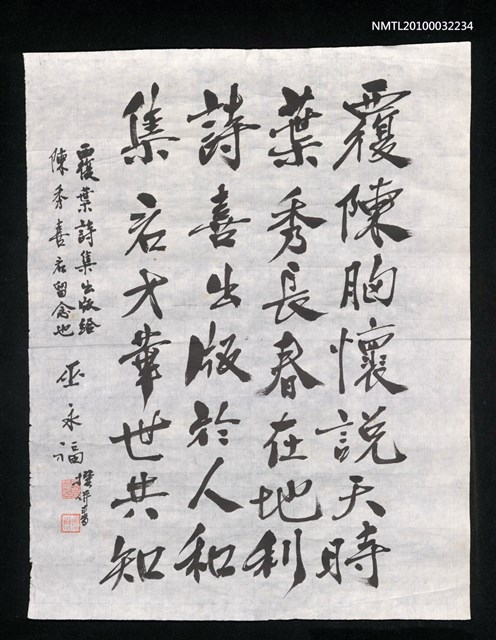 NMTL20100032234
覆陳胸懷說天時
葉秀長春在地利
詩喜出版於人和
集君才華世共知
覆葉詩集出版給
陳秀喜君留念也
巫永福撰并書